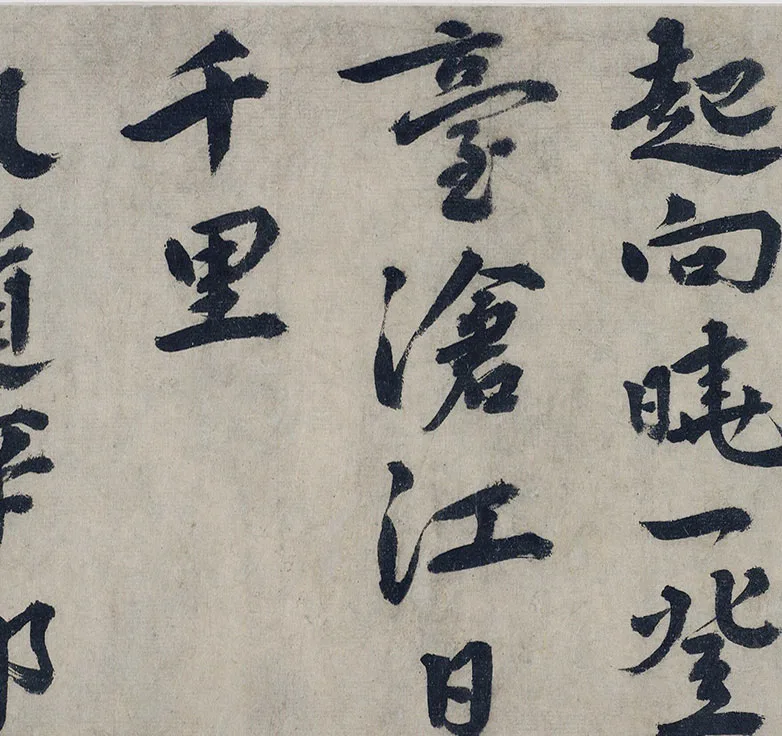 起向曉一登
臺滄江日
千里
道